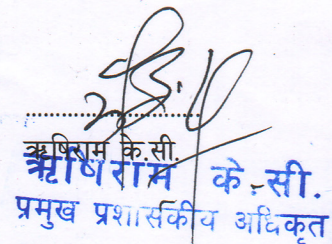 ऋषिराम के.सी.
ऋषिराम के.सी.
प्रमुख प्रशासकीय अधिकृत